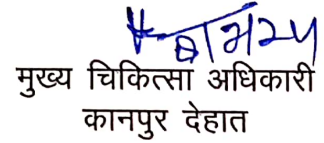 मुख्य चिकित्सा अधिकारी
कानपुर देहात